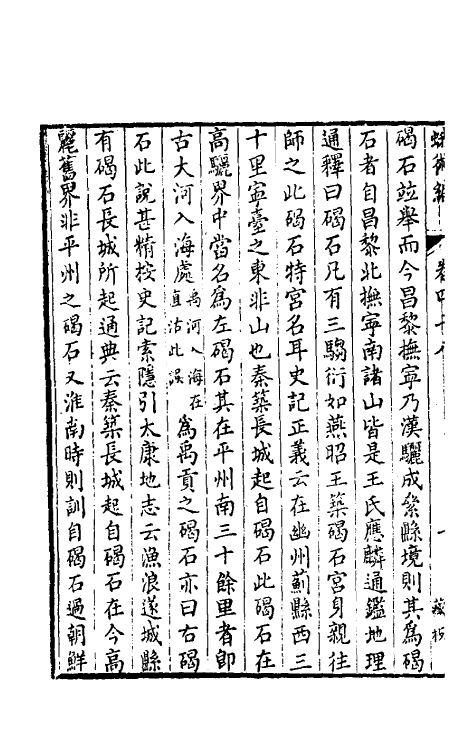 蛾術編 卷四十八 一 藏板
碣石竝舉而今昌黎撫寧乃漢驪成絫縣境則其爲碣
石者自昌黎北撫寧南諸山皆是王氏應麟通鑑地理
通釋曰碣石凡有三騶衍如燕昭王築碣石宮身親往
師之此碣石特宮名耳史記正義云在幽州薊縣西三
十里寧臺之東非山也秦築長城起自碣石此碣石在
高驪界中當名爲左碣石其在平州南三十餘里者卽
古大河入海處禹河入海在直沽此誤爲禹貢之碣石亦曰右碣
石此說甚精按史記索隱引太康地志云漁浪遂城縣
有碣石長城所起通典云秦築長城起自碣石在今高
麗舊界非平州之碣石又淮南時則訓自碣石過朝鮮